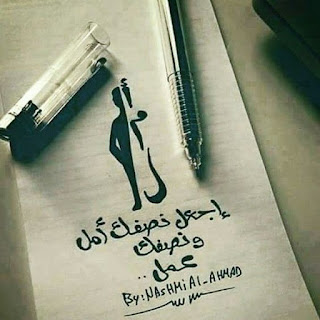 إجعل نصفك أمل
ونصفك
عمل ..
By: NAsHMi Al-AHMAD